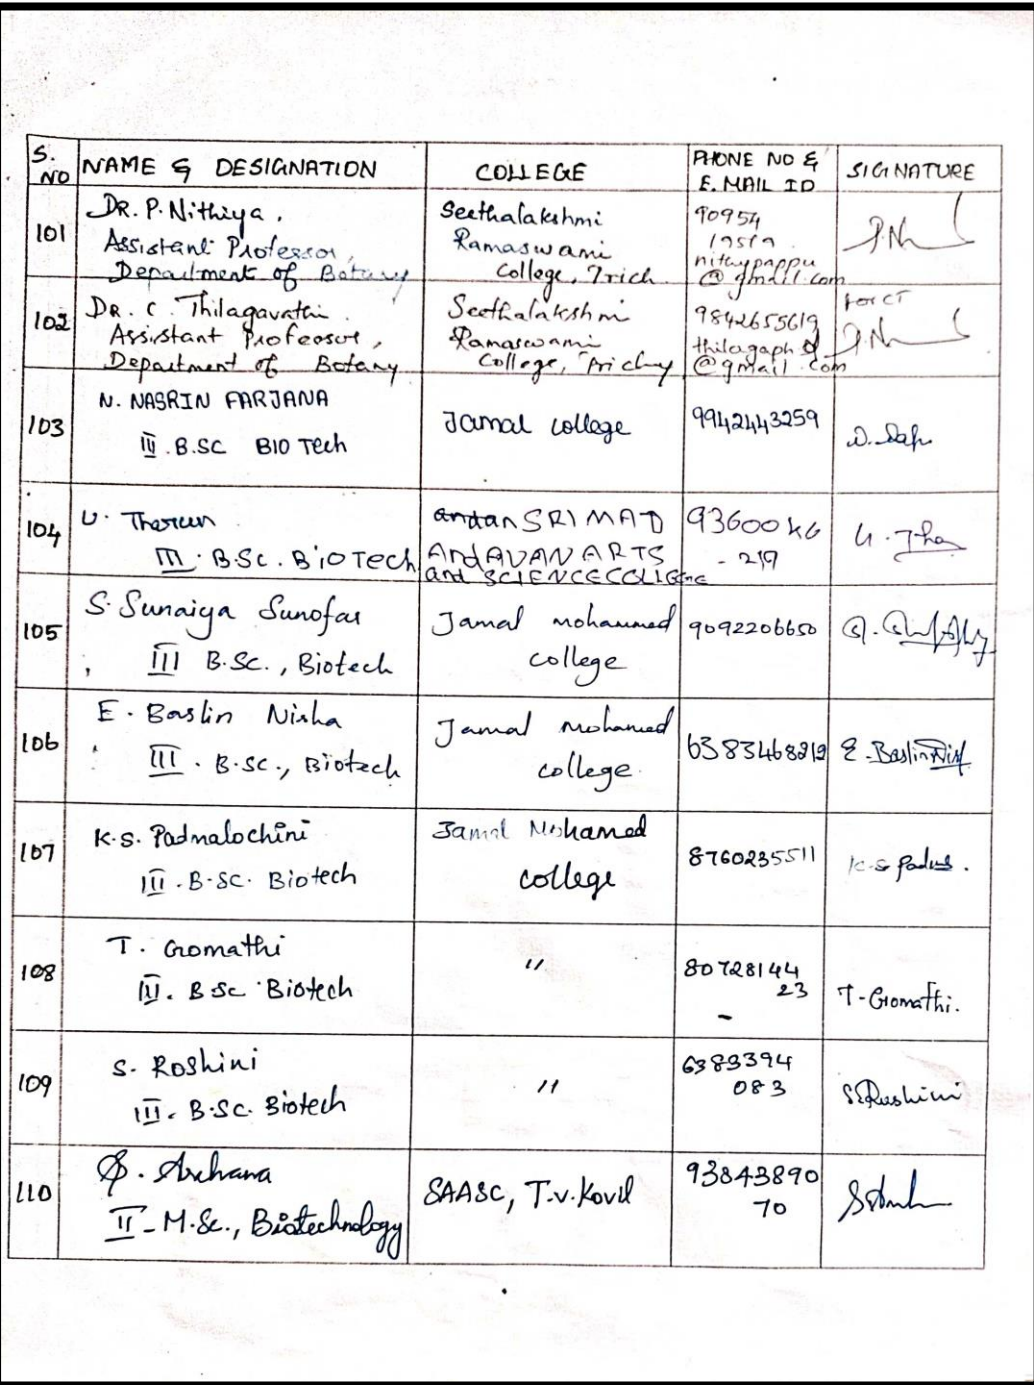 S. NO NAME & DESIGNATION COLLEGE PHONE NO & E. MAIL ID SIGNATURE
101
DR. P. Nithiya,
Assistant Professor,
Department of Botany
Seethalakshmi
Ramaswami
College, Trich
90954
nithypappu
@ gmail.com
P.N
102
DR. C. Thilagavathi
Assistant Professor,
Department of Botany
Seethalakshmi
Ramaswami
College, Trichy
9842655619
@gmail.com
for CT
P.N
103
N. NASRIN FARJANA
III. B.SC BIO Tech
Jamal college
9942443259
104
U. Tharun
III. B.Sc. BioTech
andan SRIMAD
AndAVAN ARTS
and SCIENCE COLLEGE
93600 46
- 219
105
S. Sunaiya Sunofar
III B.Sc., Biotech
Jamal mohammed
college
9092206650
106
E. Baslin Nisha
III. B.Sc., Biotech
Jamal Mohamed
college.
6383468219
E. Baslin Nis
107
K.S. Padmalochini
III. B.SC. Biotech
Jamal Mohamed
college
8760235511
K.S Padm.
108
T. Gomathi
III. B Sc Biotech
"
80728144
23
-
T. Gomathi.
109
S. Roshini
III. B.SC. Biotech
"
6383394
083
S. Roshini
110
S. Archana
II - M.Sc., Biotechnology
SAASC, T.V. Kovil
93843890
70